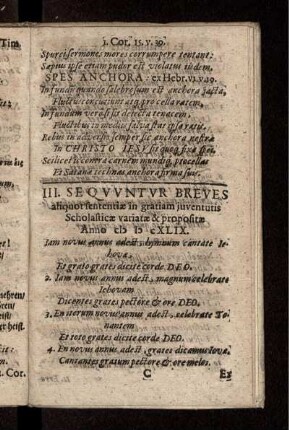 1. Cor. 15. v. 30.
Spurci sermone, mores corrumpere tentant:
Sæpius ipse etiam pudor est violatus iisdem.
SPES ANCHORA: ex Hebr. VI. v. 19.
In fundum quando salebrosum est anchora jacta,
Fluctus excutiunt atq; procella ratem,
In fundum vero si sit dejecta tenacem
Fluctibus in mediis salva stat ipsa ratis.
Rebus in adversis semper sic anchora nostra
In CHRISTO IESU sit quoq; fixa
Scilicet contra carnem mundiq; procellas
Et Satanæ technas anchora firma
III. SEQVVNTVR BREVES
aliquot sententiæ in gratiam juventutis
Scholasticæ variatæ & propositæ
Anno cIɔ Iɔ cXLIX.
Iam novus annus adest: hymnum cantate Ie-
hovæ,
Et grato grates dicite corde DEO.
2. Iam novus annus adest, magnum celebrate
Iehovam
Dicentes grates pectore & ore DEO.
3. En iterum novus annus adest, celebrate To-
nantem
Et toto grates dicite corde DEO.
4. En novus annus adest, grates dicamus Iovæ
Cantantes gratum pectore & ore melos.
C
Ex
Tim
. Cor.